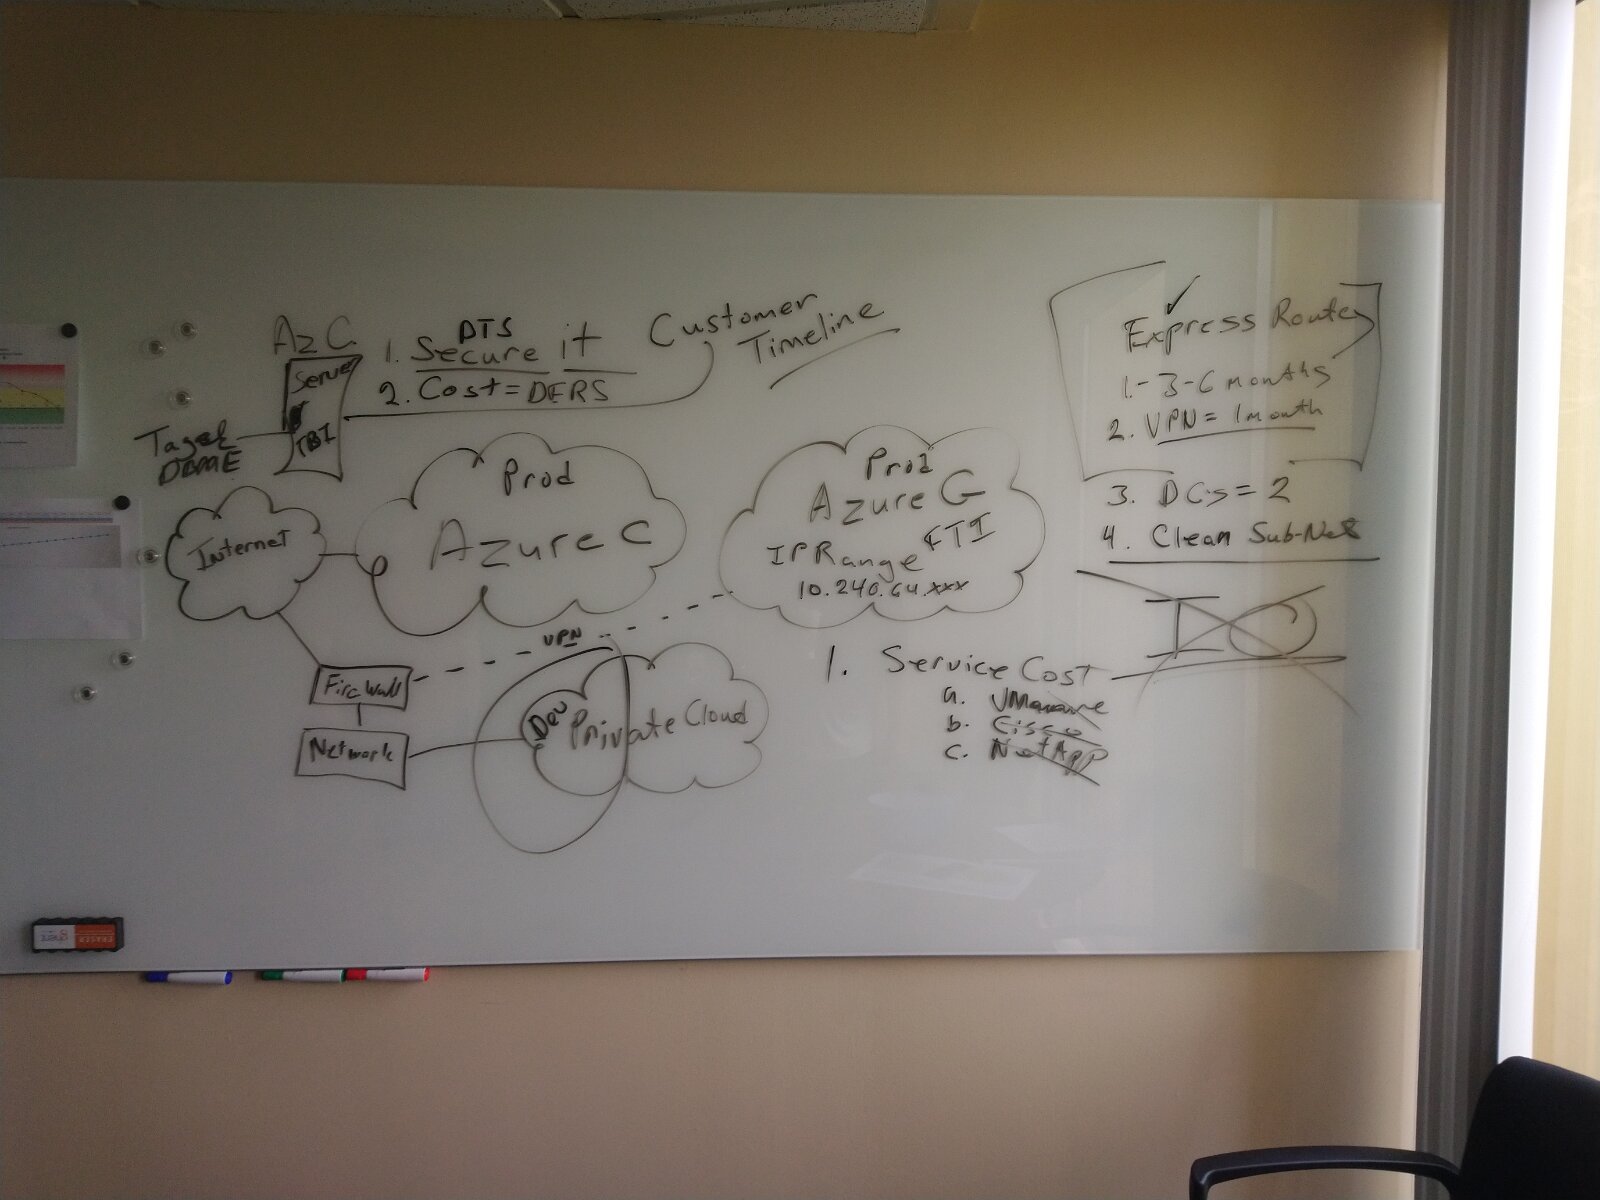 AzC
Server
TBI
DBME
DTS
1. Secure it
2. Cost = DERS
Customer
Timeline
Internet
Prod
Azure C
Prod
Azure G
FTI
IPRange
10.240.64.xxx
VPN
Firewall
Network
Dev
Private Cloud
1. Service Cost
a. VMware
b. Cisco
c. NetApp
✓
Express Route
1.- 3-6 months
2. VPN = 1month
3. DC's = 2
4. Clean Sub-Net
ERASER